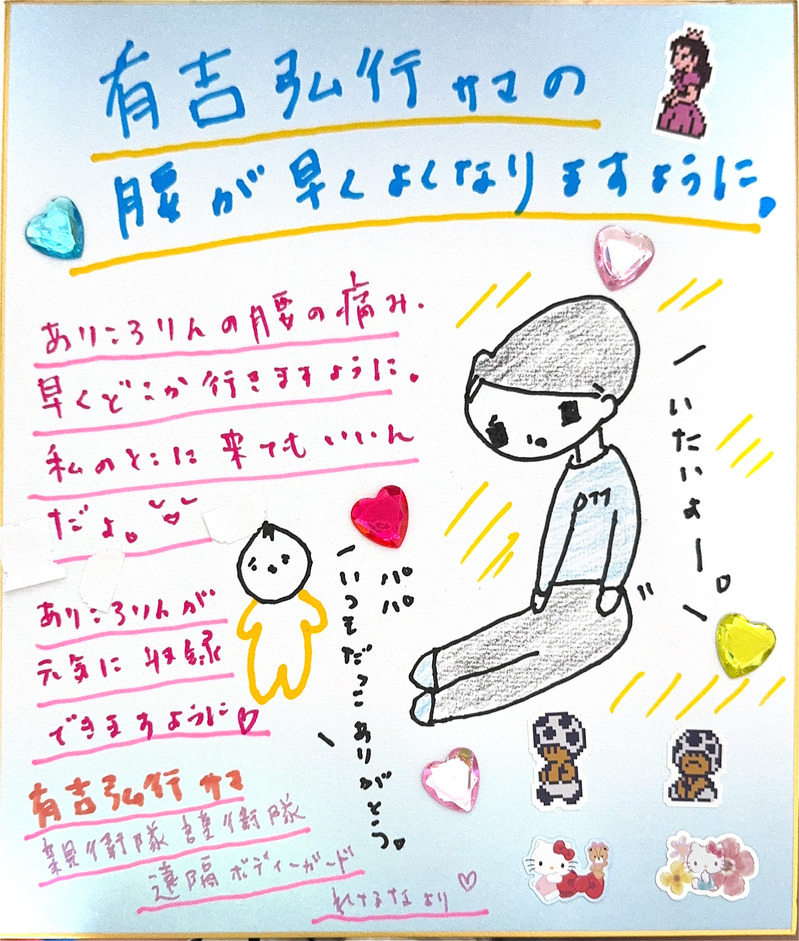 有吉弘行サマの
腰が早くよくなりますように。
ありころりんの腰の痛み.
早くどこか行きますように。
私のとこに来てもいいん
だよ。
いたいよー。
パパ
いつもだっこありがとう。
ありころりんが
元気に収録
できますように♡
有吉弘行サマ
親衛隊護衛隊
遠隔ボディーガード
より♡